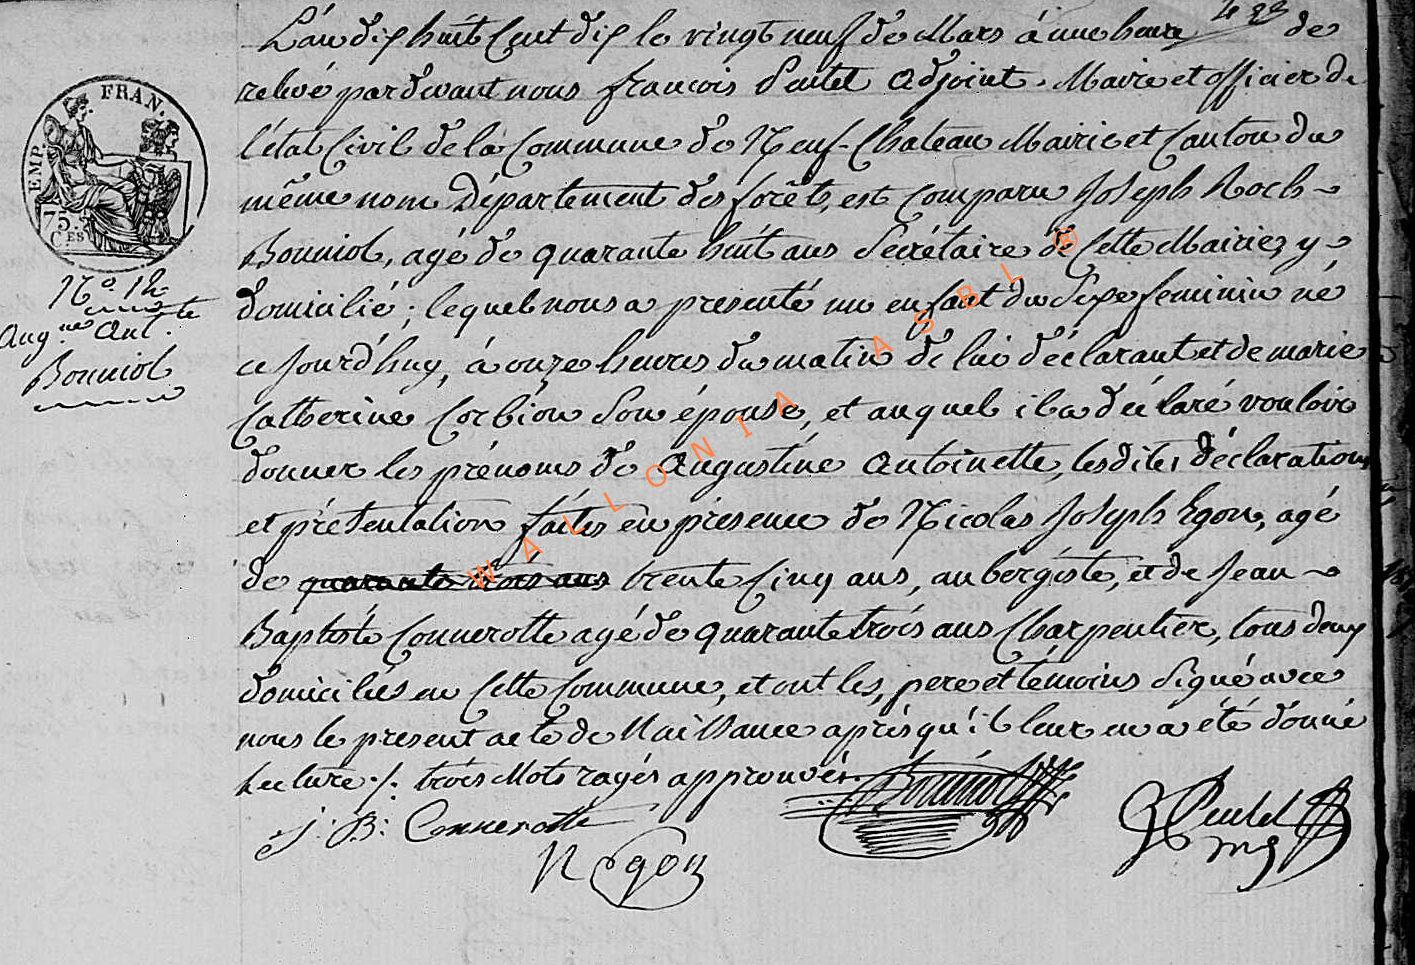 L'an dix huit Cent dix le vingt neuf de Mars à une heure de
relevé pardevant nous françois adjoint Maire et officier de
l'état Civil de la Commune de Neuf-Chateau Mairie et Canton du
même nom Département des forêts, est comparu Joseph Roch
Bouniol, agé de quarante huit ans Secrétaire de Cette Mairie, y
domicilié; lequel nous a presenté un enfant du Sexe feminin né
ce Jourd'huy, à onze heures du matin de lui déclarant et de marie
Catherine Corbion Son épouse, et auquel il a déclaré vouloir
donner les prénoms de Augustine Antoinette, lesdites déclaration
et présentation faites en présence de Nicolas Joseph Egon, agé
de quarante trois ans trente Cinq ans, aubergiste, et de Jean
Baptiste Connerotte agé de quarante trois ans Charpentier, tous deux
domiciliés en Cette Commune, et ont les, pere et témoins Signé avec
nous le present acte de Naissance après qu'il leur en a été donné
Lecture ./. trois Mots rayés approuvés.
J: B: Connerotte
N Egon
Bouniol
EMP. FRAN.
75
CES
N° 12
Aug.ne Ant.te
Bouniol
WALLONIA ASBL ®